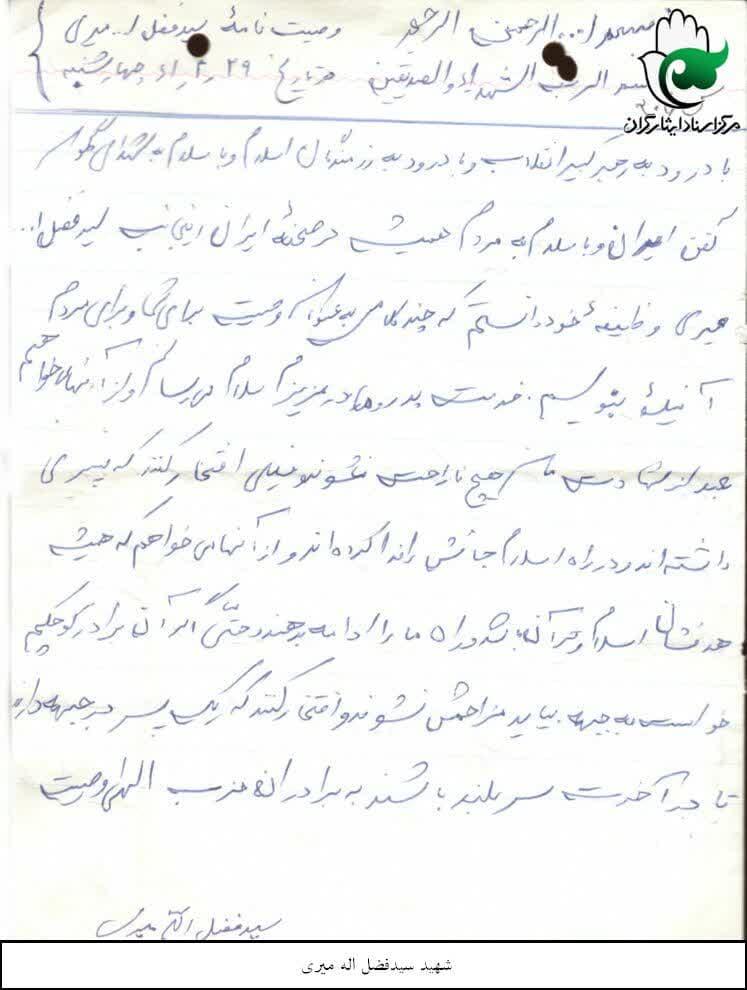 بسم ا... الرحمن الرحیم وصیت نامهٔ سیدفضل ا... میری
الشهداء والصدیقین بتاریخ ۲۹ ر ۲ ر چهارشنبه
مرکز اسناد ایثارگران
با درود به رهبر کبیر انقلاب و با درود به رزمندگان اسلام و با سلام به شهدای گلگون
کفن ایران و با سلام به مردم همیشه در صحنهٔ ایران اینجانب سیدفضل ا..
میری وظیفهٔ خود دانستم که چند کلامی به عنوان وصیت برای شما و برای مردم
بنویسم. خدمت پدر و مادر عزیزم سلام می رسانم و از آنها می خواهم
بعد از شهادت من هیچ ناراحت نشوند و خیلی افتخار کنند که پسری
داشته اند و در راه اسلام جانش را فدا کرده اند و از آنها می خواهم که همیشه
هدفشان اسلام و قرآن باشد و راه ما را ادامه بدهند و حتّی اگر آن برادر کوچکیم
خواست به جبهه بیاید مزاحمش نشوند و افتخار کنند که یک پسر در جبهه دارند
تا در آخرت سر بلند باشند به برادران حزب الهی وصیت
سیدفضل الله میری
شهید سیدفضل اله میری